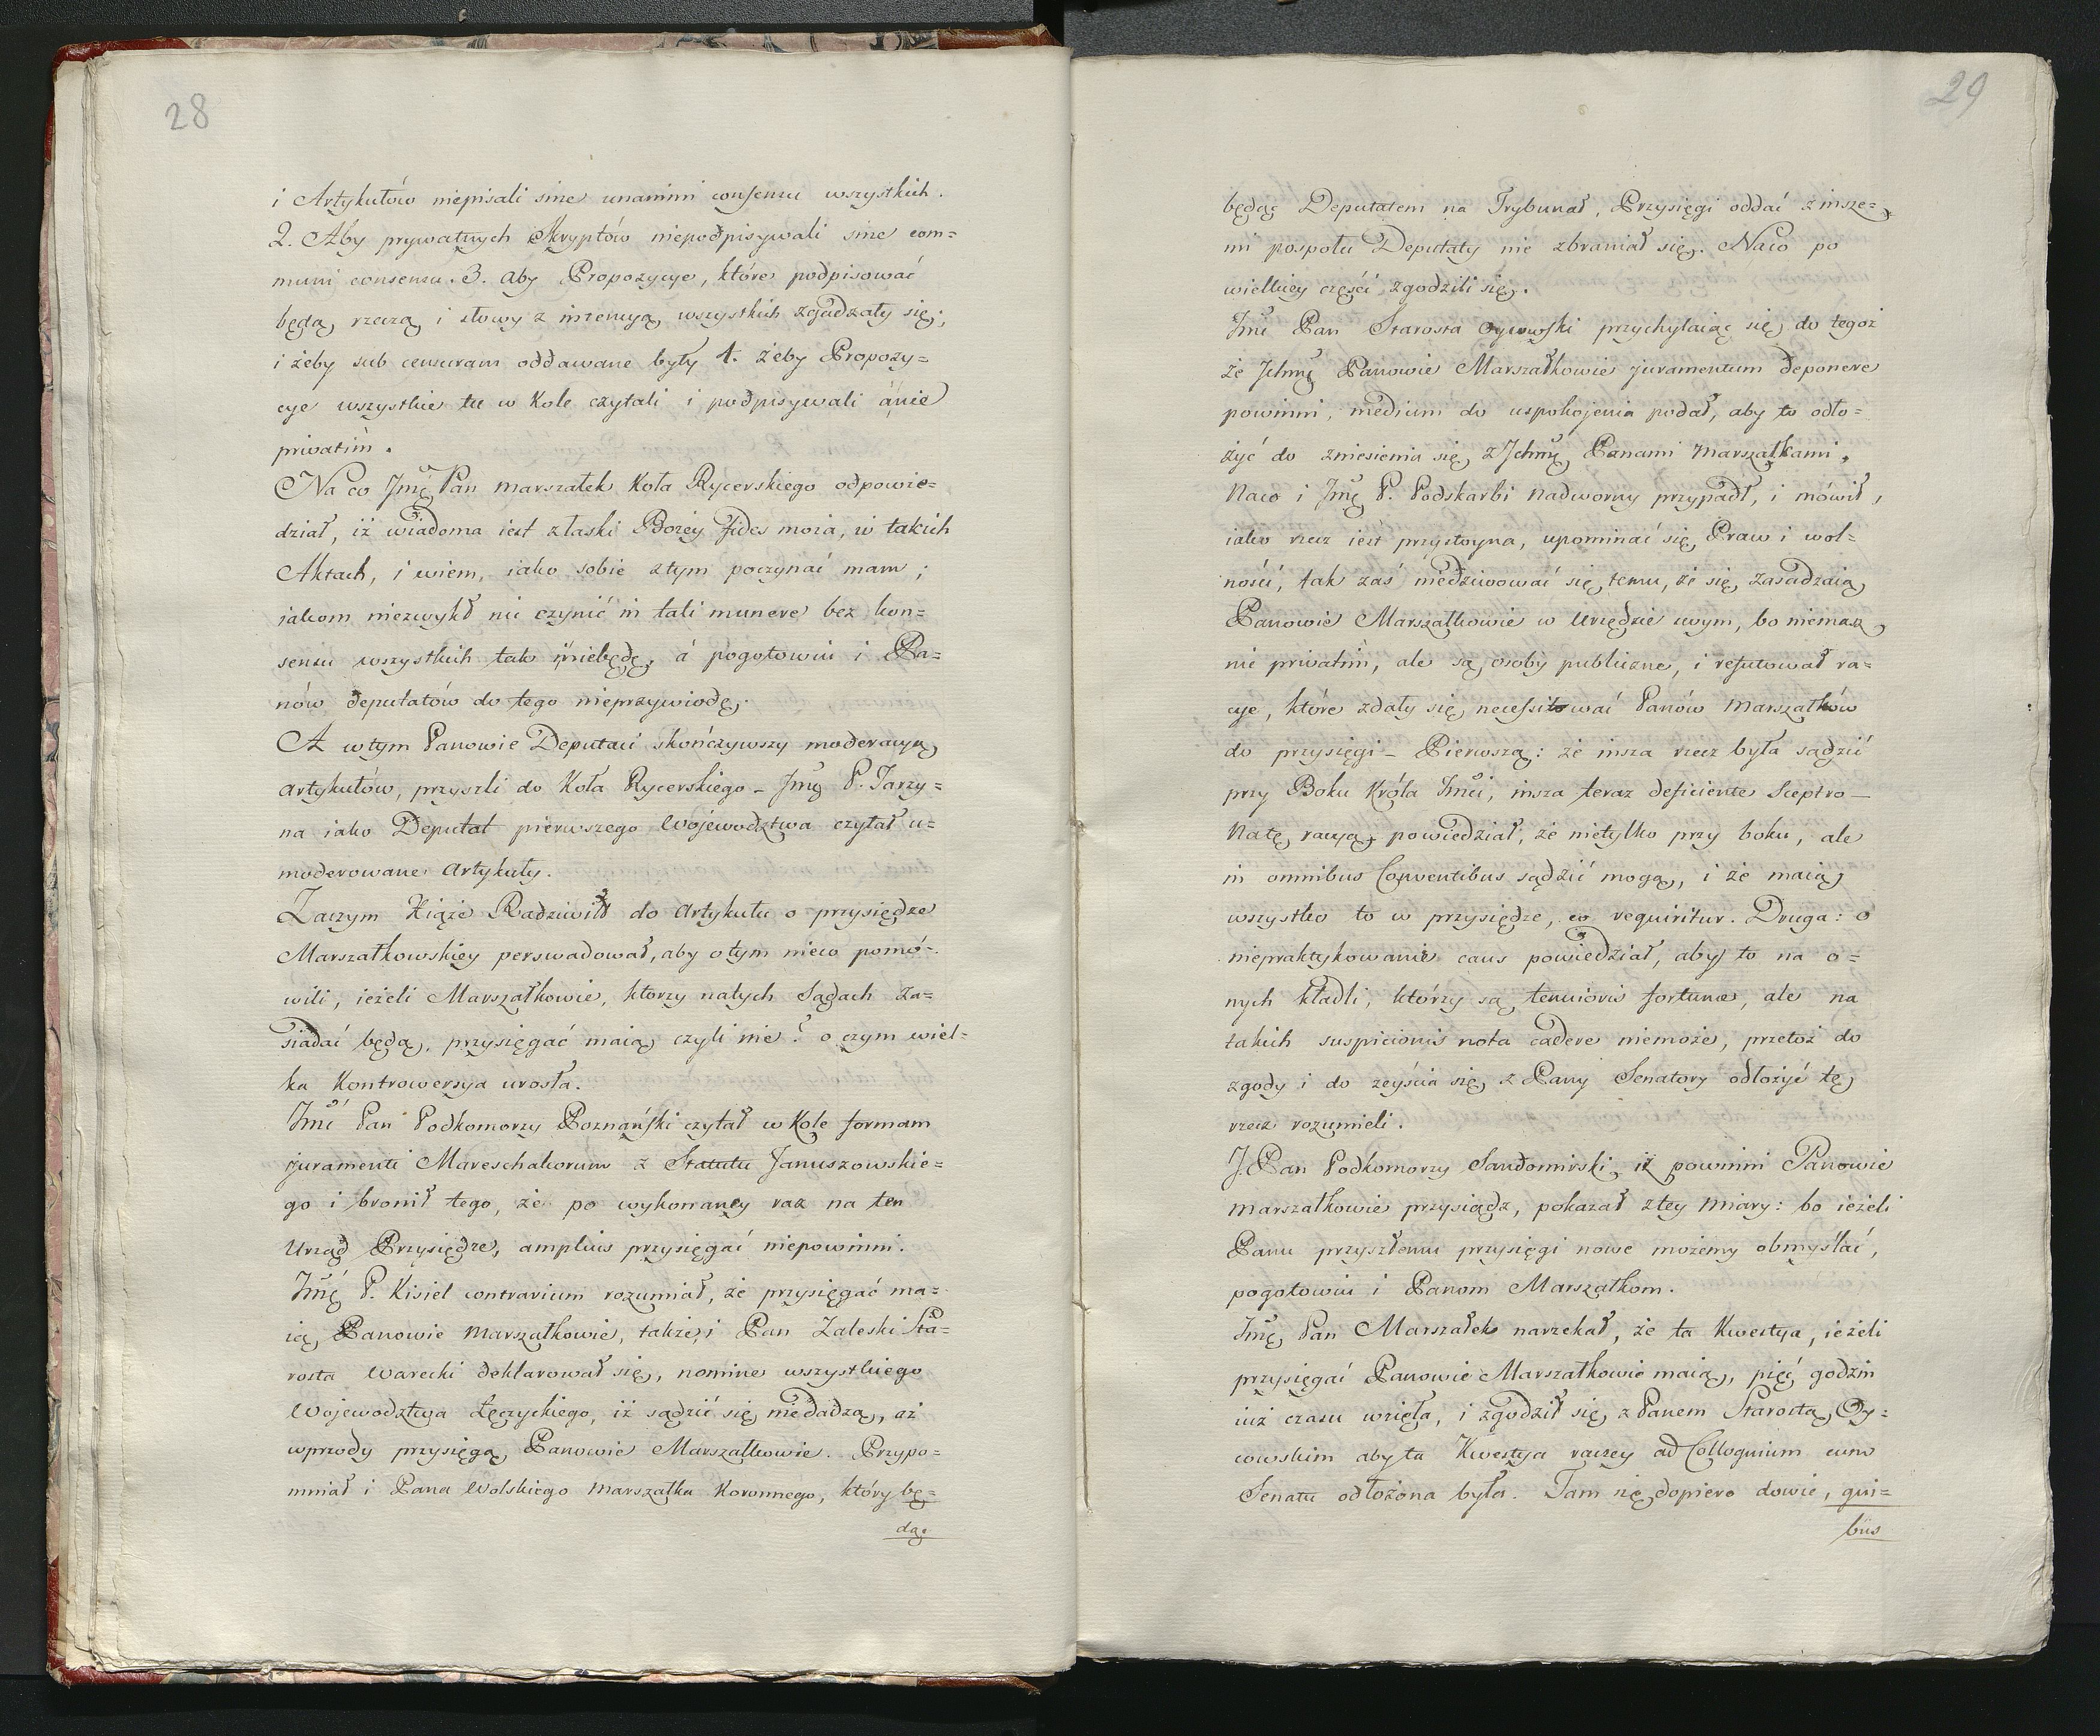 28
i Artykułów niepisali sine unanimi consensu wszystkich.
2. Aby prywatnych Skryptów niepodpisywali sine com=
muni consensu. 3. aby Propozycye, które podpisować
będą, rzeczą i słowy z intencyą wszystkich zgadzały się;
i żeby sub censuram oddawane były 4. żeby Propozy=
cye wszystkie tu w Kole czytali i podpisywali á nie
privatim.
Na co Jmć Pan Marszałek Koła Rycerskiego odpowie=
dział, iż wiadoma iest z łaski Bożey fides moia, w takich
Aktach, i wiem, iako sobie z tym poczynać mam;
iakom niezwykł nic czynić in tali munere bez kon=
sensu wszystkich tak i niebędę, á pogotowiu i Pa=
nów deputatów do tego nieprzywiodę.
A wtym Panowie Deputaci skończywszy moderacyą
Artykułów, przyszli do Koła Rycerskiego – Jmć P. Jarzy=
na iako Deputat pierwszego Województwa czytał u=
moderowane Artykuły.
Zaczym Xiąże Radziwiłł do Artykułu o przysiędze
Marszałkowskiey perswadował, aby o tym nieco pomó=
wili, ieżeli Marszałkowie, ktorzy natych Sądach za=
siadać będą, przysięgać maią czyli nie? o czym wiel=
ka Kontrowersya urosła.
Jmć Pan Podkomorzy Poznański czytał w Kole formam
juramenti Mareschalcorum z Statutu Januszowskie=
go i bronił tego, że po wykonaney raz na ten
Urząd Przysiędze, amplius przysięgać niepowinni.
Jmć P. Kisiel contrarium rozumiał, że przysięgać ma=
ią Panowie Marszałkowie, także i Pan Zaleski Sta=
rosta Warecki deklarował się, nomine wszystkiego
Wojewodztwa Łęczyckiego, iż sądzić się niedadzą, aż
wprzody przysięgą Panowie Marszałkowie. Przypo=
mniał i Pana Wolskiego Marszałka Koronnego, który bę=
dąc
29
będąc Deputatem na Trybunał, Przysięgi oddać z insze=
mi pospołu Deputaty nie zbraniał się. Naco po
wielkiey części zgodzili się.
Jmć Pan Starosta Oycowski przychylaiąc się do tegoż
że Ichmć Panowie Marszałkowie juramentum deponere
powinni, medium do uspokojenia podał, aby to odło=
żyć do zniesienia się z Ichmć Panami Marszałkami.
Naco i Jmć P. Podskarbi Nadworny przypadł, i mówił,
iako rzecz iest przystoyna, upominać się Praw i wol=
ności, tak zaś niedziwować się temu, że się zasadzaią
Panowie Marszałkowie w Urzędzie swym, bo niemasz
nic privatim, ale są osoby publiczne, i refutował ra=
cye, które zdały się necessitować Panów Marszałków
do przysięgi – Pierwszą: że insza rzecz była sądzić
przy Boku Króla Jmci, insza teraz deficiente Sceptro –
Natę racyą powiedział, że nietylko przy boku, ale
in omnibus Conventibus sądzić mogą, i że maią
wszystko to w przysiędze, co requiritur. Druga: o
niepraktykowanie caus powiedział, aby to na o=
nych kładli, którzy są tenuioris fortunæ, ale na
takich suspicionis nota cadere niemoże, przetoż do
zgody i do zeyścia się z Pany Senatory odłożyć tę
rzecz rozumieli.
J. Pan Podkomorzy Sandomirski, iż powinni Panowie
Marszałkowie przysiądz, pokazał z tey miary: bo ieżeli
Panu przyszłemu przysięgi nowe możemy obmyślać,
pogotowiu i Panom Marszałkom.
Jmć Pan Marszałek narzekał, że ta Kwestya, ieżeli
przysięgać Panowie Marszałkowie maią, pięć godzin
iuż czasu wzięła, i zgodził się z Panem Starostą Oy=
cowskim aby ta Kwestya raczey ad Colloquium cum
Senatu odłożona była. Tam się dopiero dowie, qui=
bus